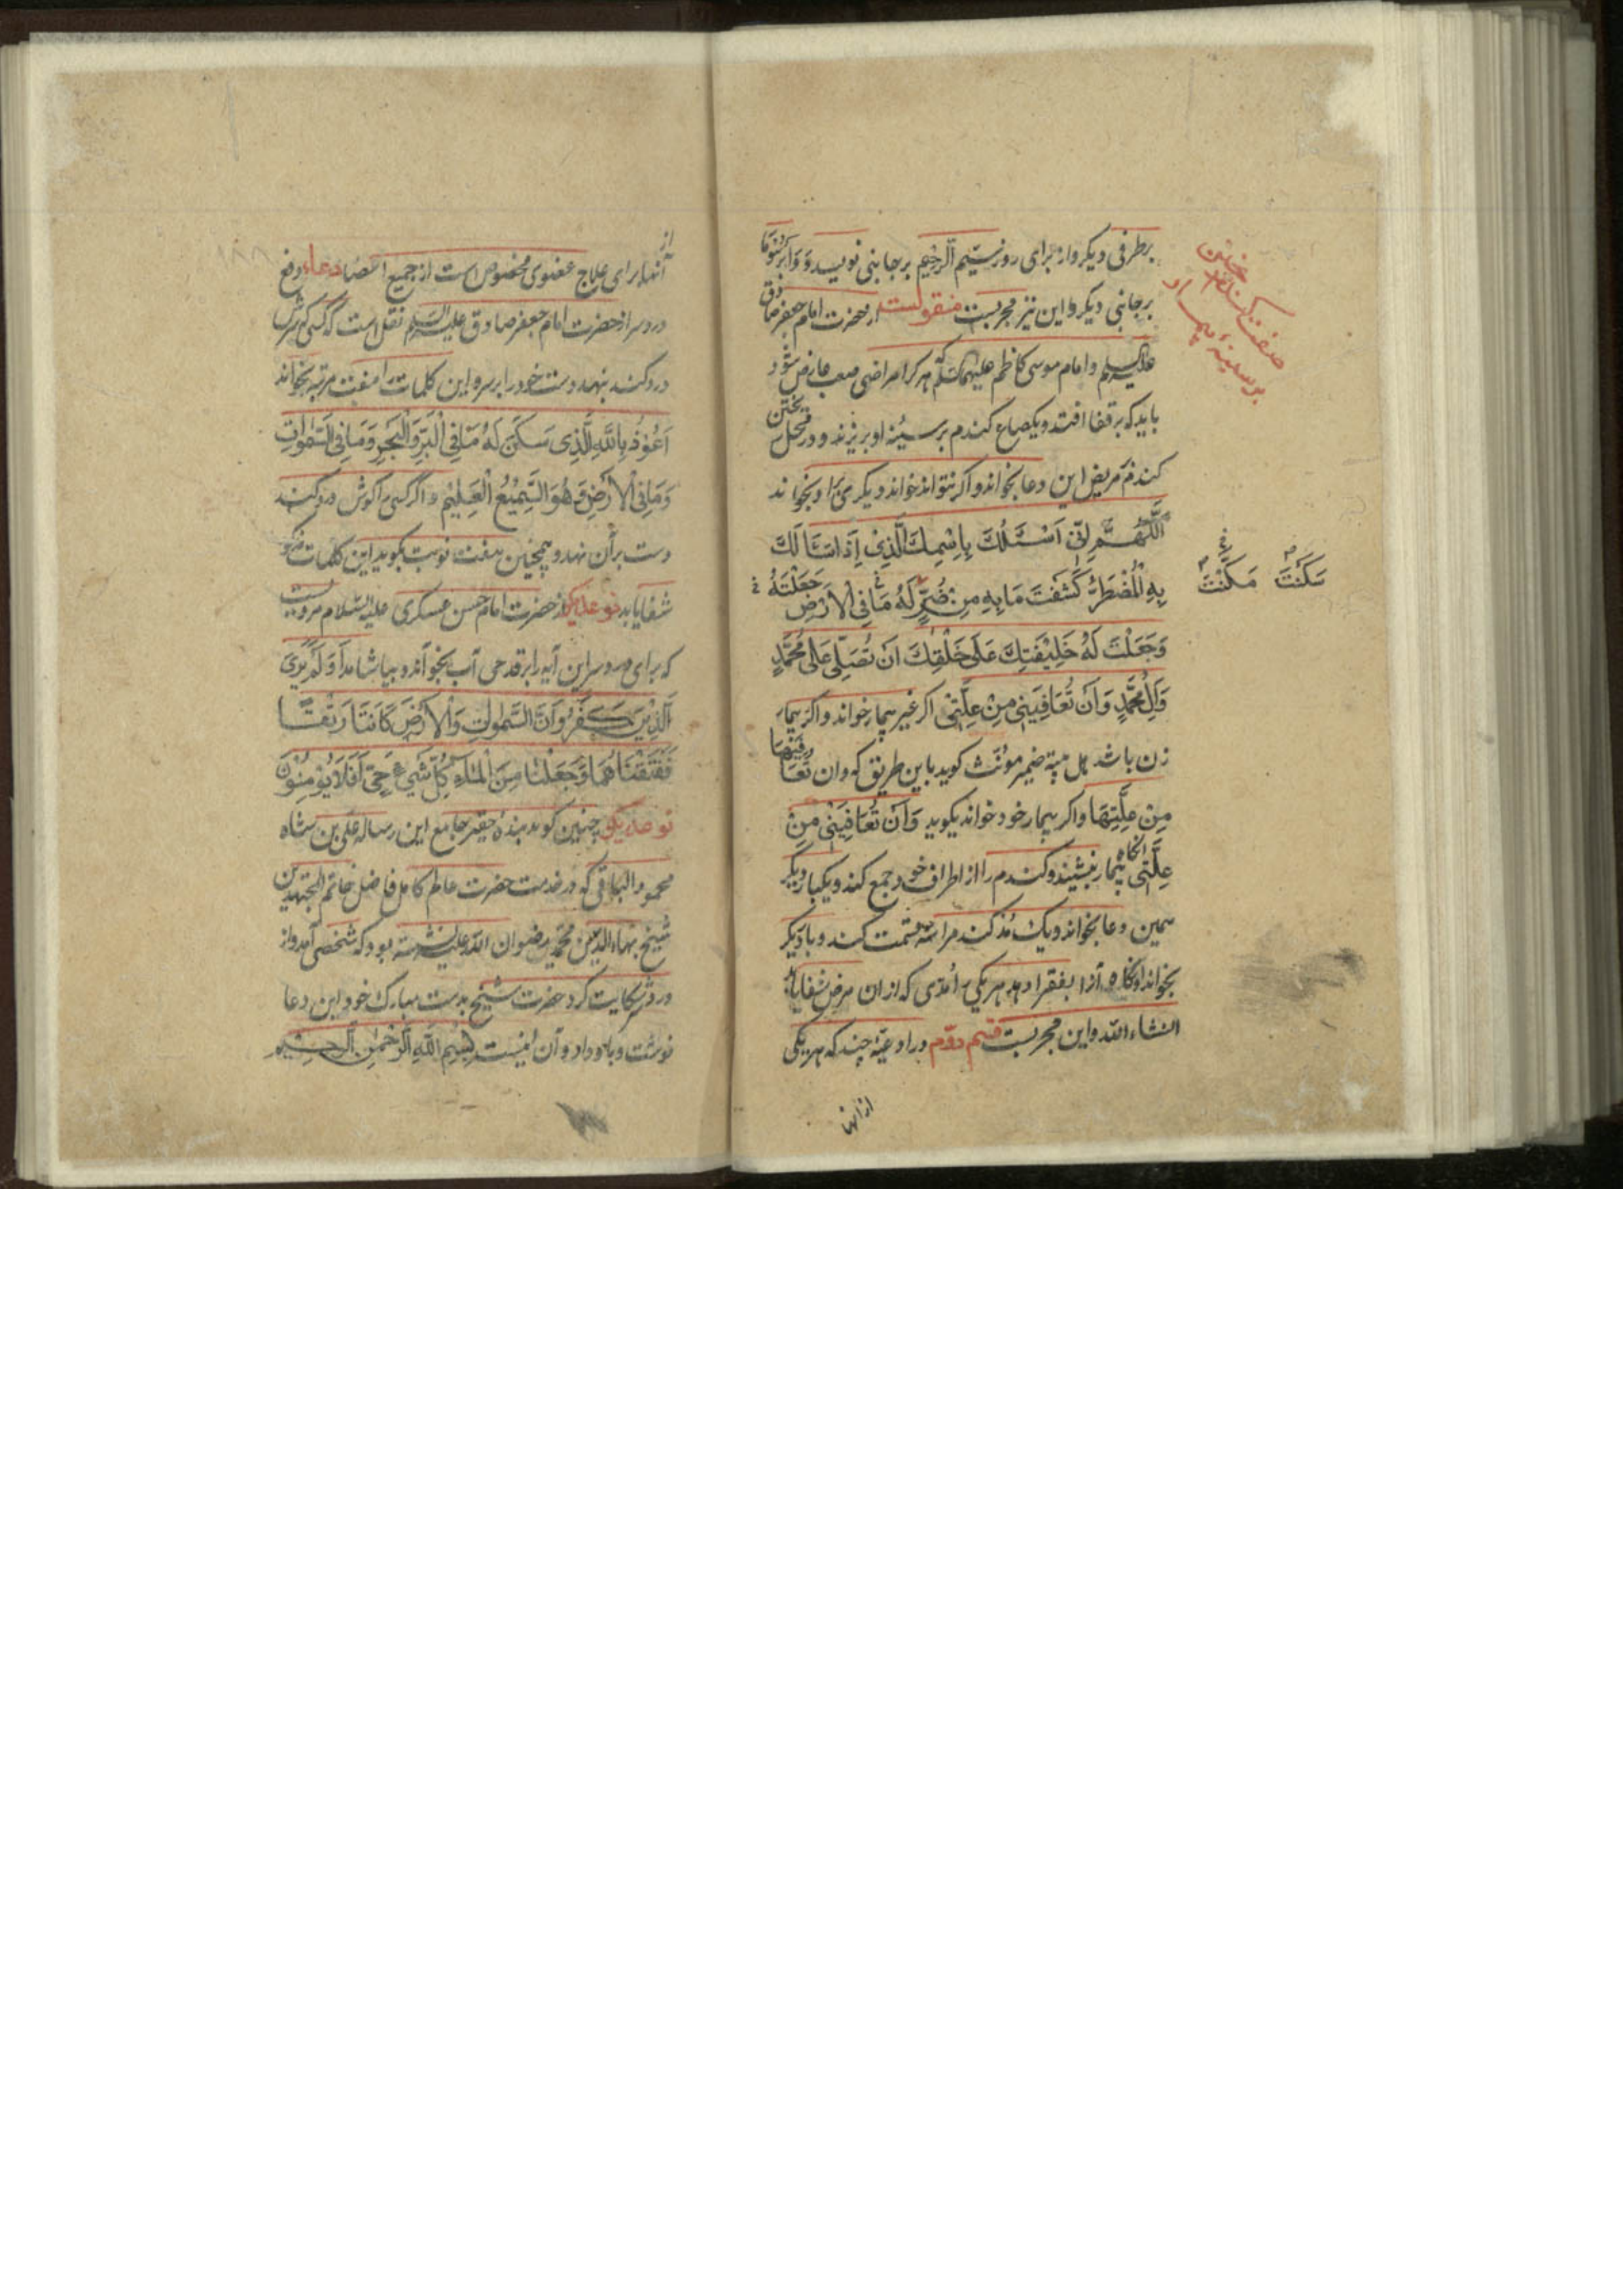 برطرفی دیکر واز برای روز سیّم الرّحیم برجانبی نویسد و
برجانبی دیکر و این نیز مجربست منقولست از حضرت امام جعفر صادق
علیه السلم و امام موسی کاظم علیهما السّلم که هر کرا مراضی صعب عارض شود
باید که بر قفا افتد و یکصاع کندم بر سینهٔ او بریزند و در محل ریختن
کندم مریض این دعا بخواند و اکر نتواند خواند دیکری برا او بخواند
اَللّٰهُمَّ اِنّی اَسْئَلُکَ بِاِسْمِكَ الَّذِیْ اِذَا سَئَالَكَ
بِهِ الْمُضْطَرُّ کَشَفْتَ مَا بِهِ مِنْ ضُرٍّ لَهُ مَا فِی الْاَرْضِ جَعَلْتَهُ
وَجَعَلْتَ لَهُ خَلِیْفَتِكَ عَلَی خَلْقِكَ اَنْ تُصَلِّی عَلَی مُحَمَّدٍ
وَآلِ مُحَمَّدٍ وَاَنْ تُعَافِیَنِی مِنْ عِلَّتِی اکر غیر بیمار خواند و اکر بیمار
زن باشد ضمیر مونّث کوید باین طریق که وان تُعَافِیَهَا
مِنْ عِلَّتِهَا و اکر بیمار خود خواند بکوید وَاَنْ تُعَافِیَنِیْ مِنْ
عِلَّتِی انکاه بیمار بنشیند و کندم را از اطراف خود جمع کند و یکبار دیکر
همین دعا بخواند و یك مُد کندم را سه قسمت کند و بار دیکر
بخواند اونکاه آنرا بفقرا دهد هر یکی را مُدّی که ازان مرض شفا یابد
انشاء الله و این مجربست قسم دوّم در ادعیّهٔ چند که هر یکی
از انها
سَکَنْتَ مَکَّنْتَ
از
آنها برای علاج عضوی مخصوص است از جمیع اعضا دعاء دفع
درد سر از حضرت امام جعفر صادق علیه السّلم نقل است که کسی که سرش
درد کند بنهد دست خود را بر سر و این کلمات را هفت مرتبه بخواند
اَعُوْذُ بِاللّٰهِ الَّذِی سَکَنَ لَهُ مَا فِی الْبَرِّ وَالْبَحْرِ وَمَا فِی السَّمٰوَاتِ
وَمَا فِی الْاَرْضِ وَهُوَ السَّمِیْعُ الْعَلِیْمِ و اکر کسی را کوش درد کند
دست بر آن نهد و همچنین هفت نوبت بکوید این کلمات که
شفا یابد نوعدیکر از حضرت امام حسن عسکری علیه السّلام مرویست
که برای درد سر این آیه را بر قدحی آب بخواند و بیاشامد اَوَلَمْ یَرَیَ
اَلَّذِیْنَ کَفَرُوا اَنَّ السَّمٰوَاتِ وَالْاَرْضَ کَانَتَا رَتْقًا
فَفَتَقْنَاهُمَا وَجَعَلْنَا مِنَ الْمَاءِ کُلَّ شَیْءٍ حَیٍّ اَفَلَا یُوْمِنُوْنَ
نوعدیکر چنین کوید بندهٔ حقیر جامع این رساله علی بن شاه
محمود البافقی که در خدمت حضرت عالم کامل فاضل خاتم المجتهدین
شیخ بهاء الدّین محمّد رضوان الله علیه نشسته بود که شخصی آمد و از
درد سر شکایت کرد حضرت شیخ بدست مبارك خود این دعا
نوشت و باو داد و آن اینست بِسْمِ اللّٰهِ الرَّحْمٰنِ الرَّحِیْمِ